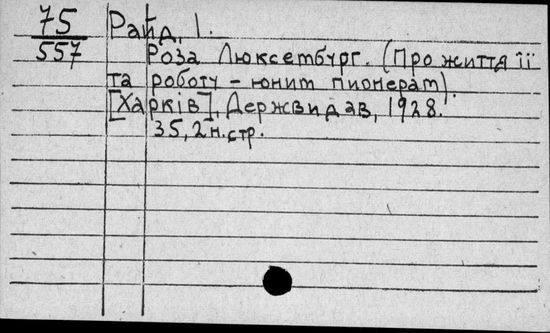 75
557
Райд, І.
Роза Люксембург. (Про життя її
та роботу – юним пионерам).
[Харків], Держвидав, 1928.
35, 2 н. стр.